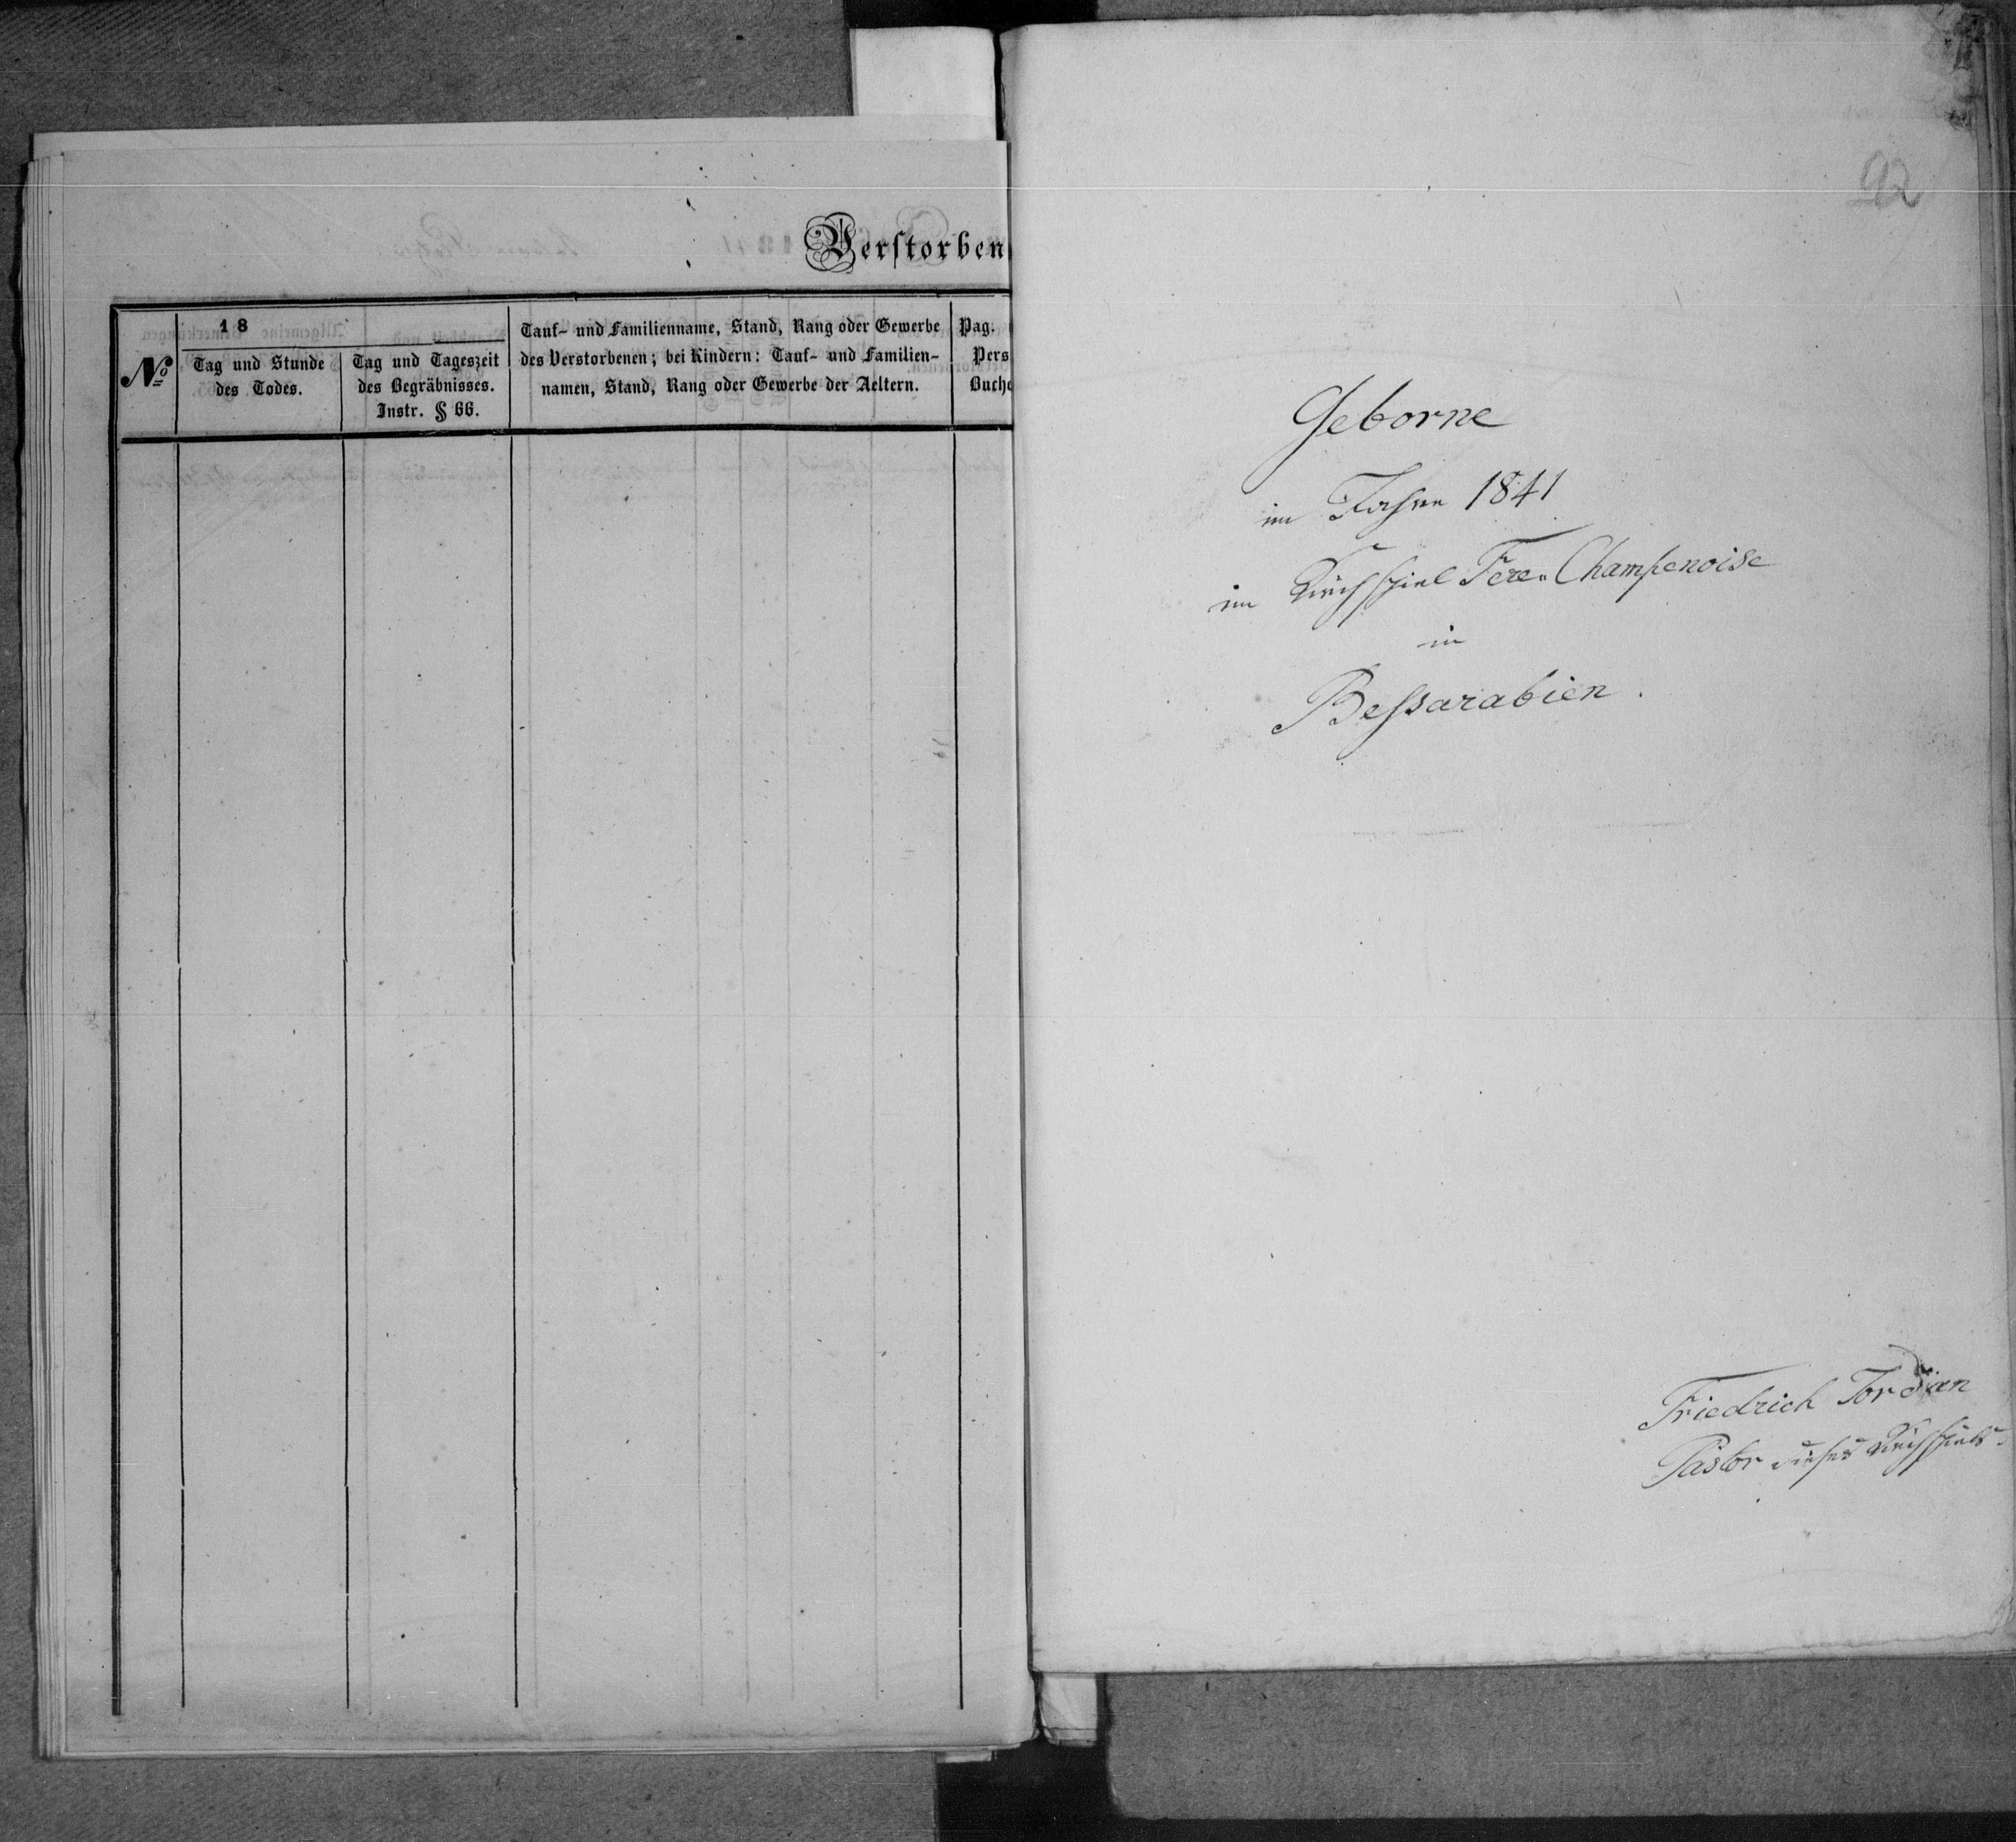 Verstorben
No
18
Tag und Stunde
des Todes.
Tag und Tageszeit
des Begräbnisses.
Instr. § 66.
Tauf- und Familienname, Stand, Rang oder Gewerbe
des Verstorbenen; bei Kindern: Tauf- und Familien-
namen, Stand, Rang oder Gewerbe der Aeltern.
Pag.
Pers
Buch
92
Geborne
im Jahre 1841
im Kirchspiel Fere-Champenoise
in
Bessarabien.
Friedrich
Pastor dieses Kirchspiels.